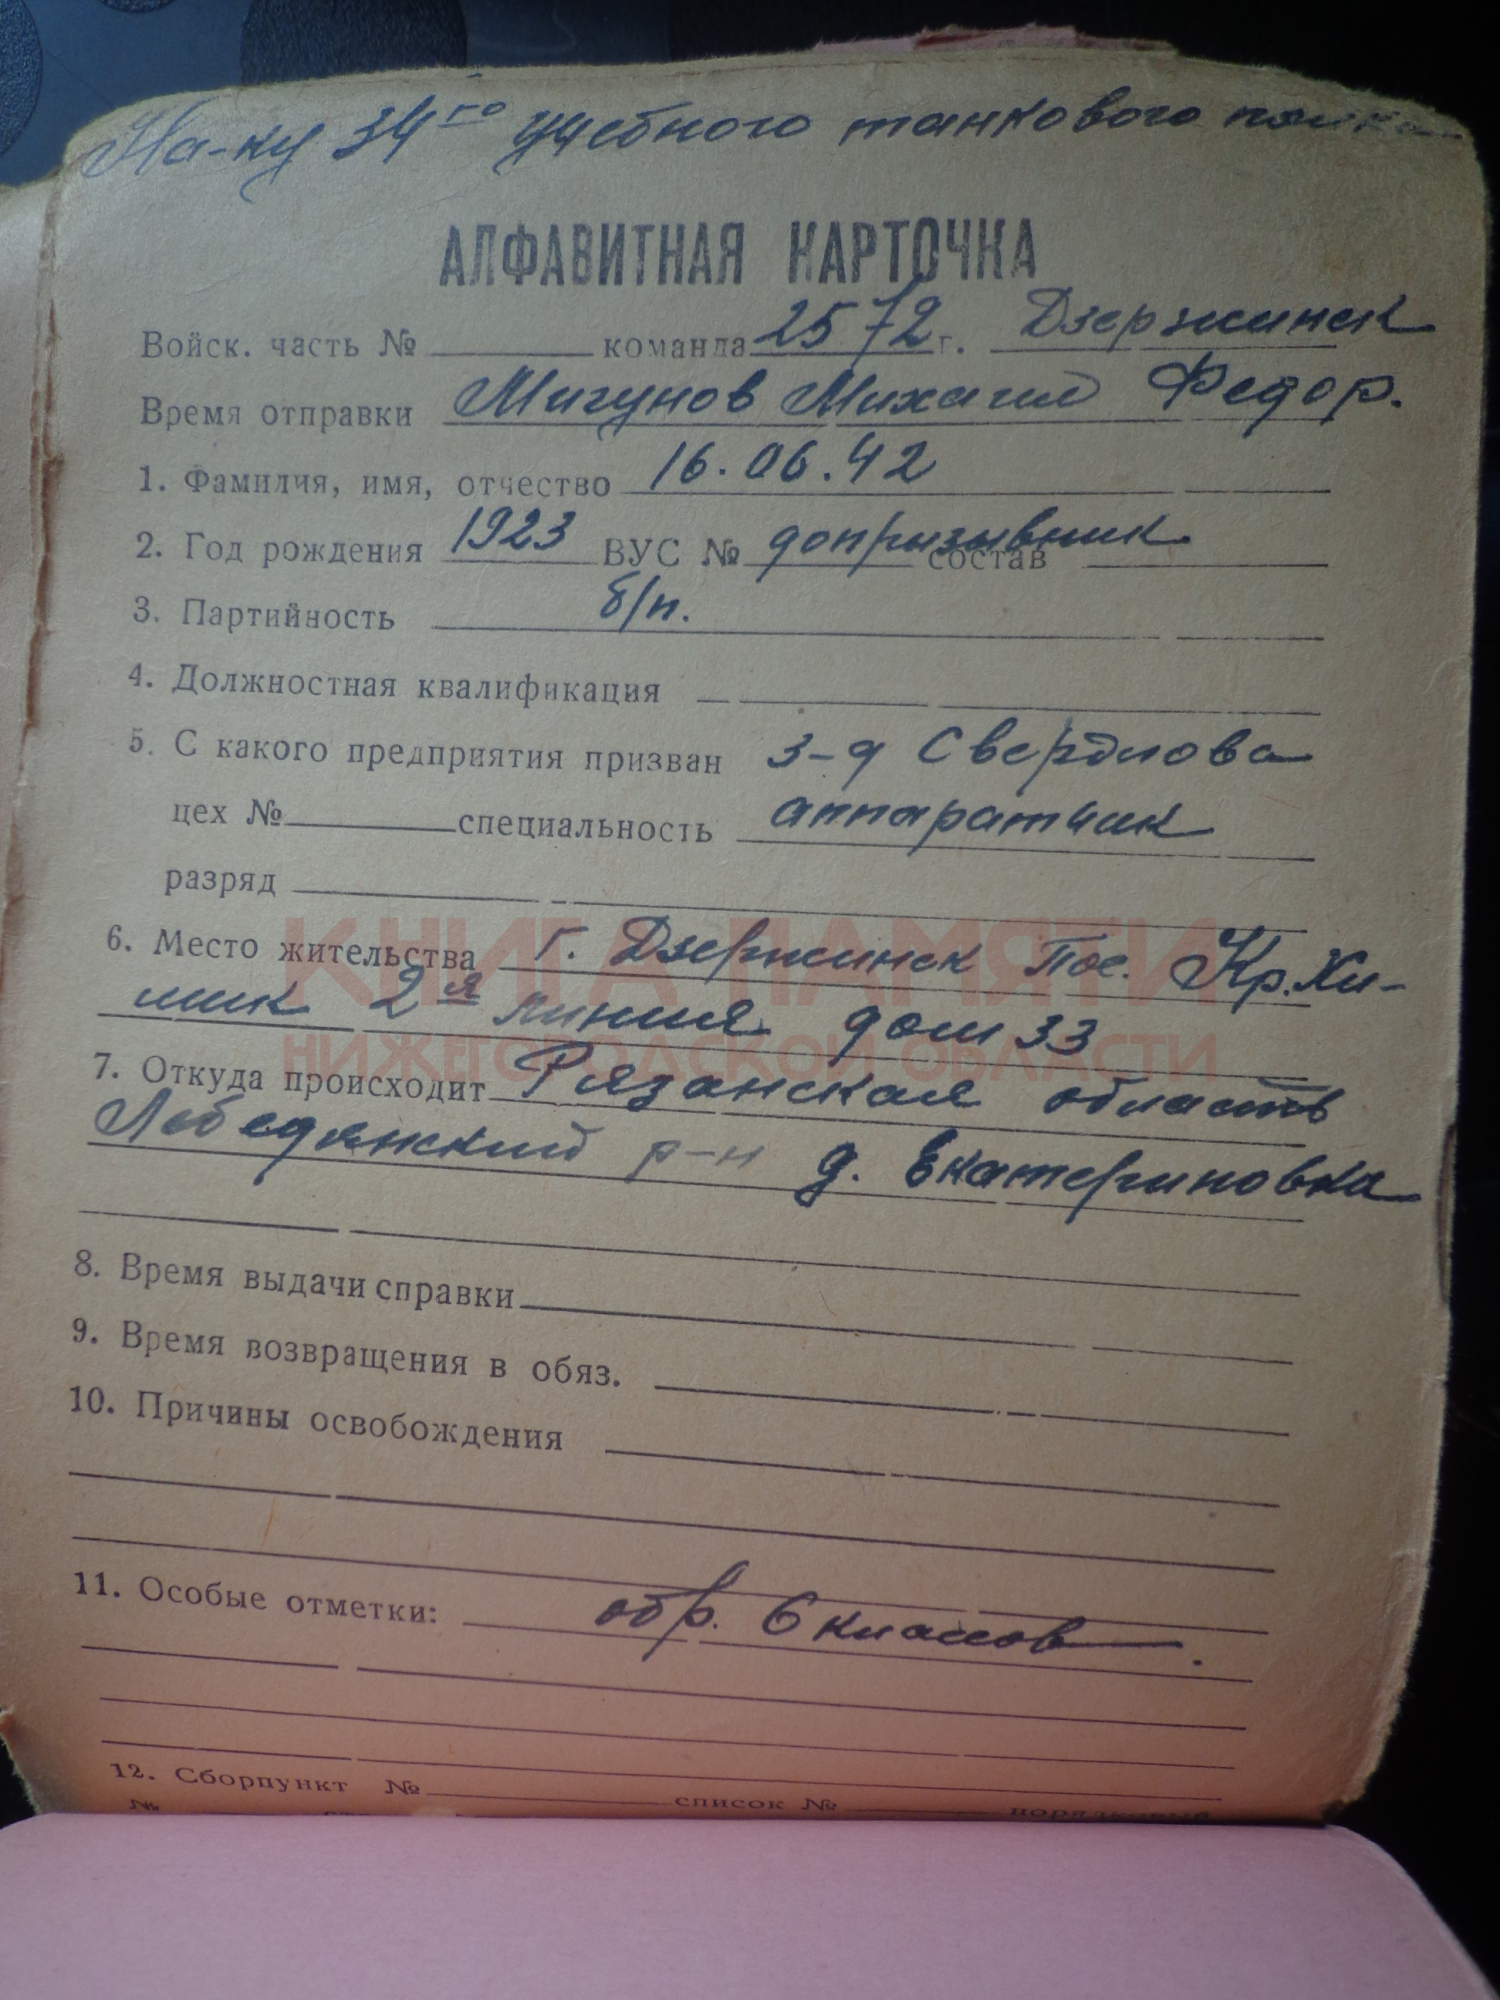 На-ку 34го учебного танкового полка
АЛФАВИТНАЯ КАРТОЧКА
Войск. часть № команда 2572 г. Дзержинск
Время отправки Мигунов Михаил Федор.
1. Фамилия, имя, отчество 16.06.42
2. Год рождения 1923 ВУС № допризывник состав
3. Партийность б/п.
4. Должностная квалификация
5. С какого предприятия призван з-д Свердлова
цех № специальность аппаратчик
разряд
6. Место жительства г. Дзержинск Пос. Кр. Хи-
мик 2я линия дом 33
7. Откуда происходит Рязанская область
Лебедянский р-н д. Екатериновка
8. Время выдачи справки
9. Время возвращения в обяз.
10. Причины освобождения
11. Особые отметки: обр. 6 классов.
12. Сборпункт № список № порядковый
№
КНИГА ПАМЯТИ
НИЖЕГОРОДСКОЙ ОБЛАСТИ